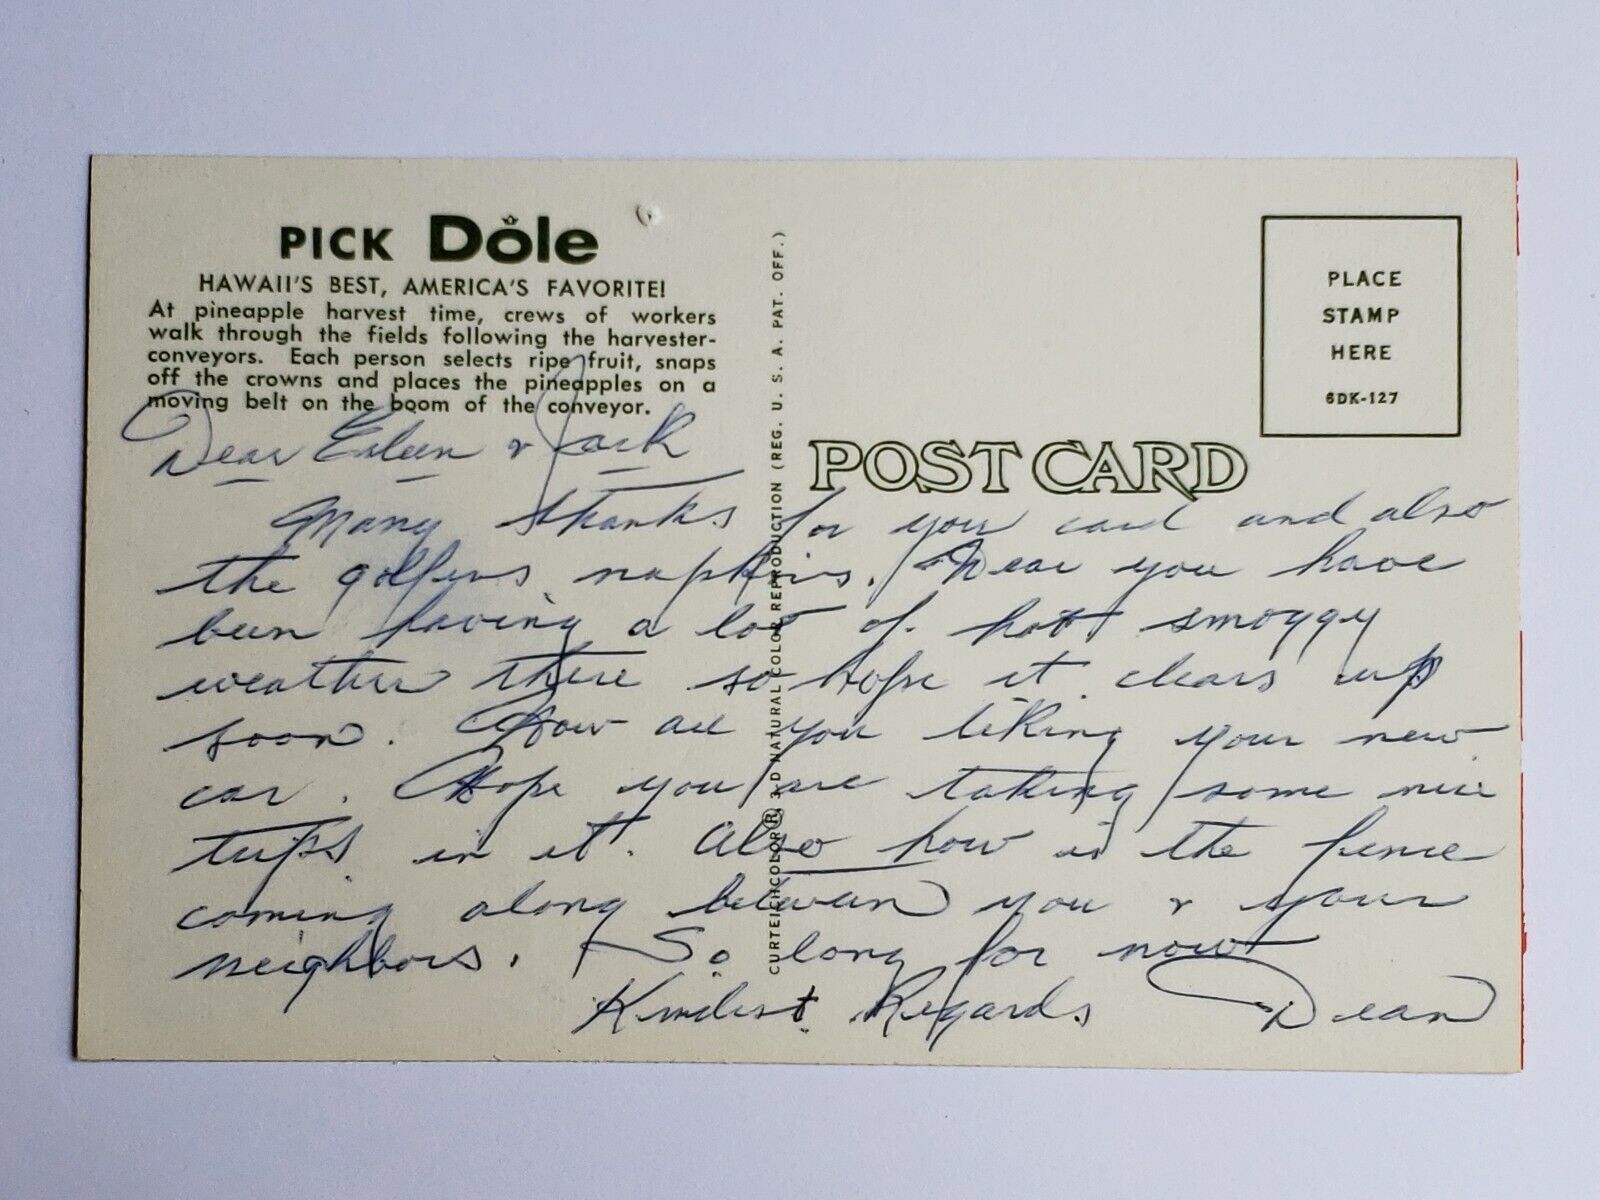 PICK Dole
HAWAII'S BEST, AMERICA'S FAVORITE!
At pineapple harvest time, crews of workers
walk through the fields following the harvester-
conveyors. Each person selects ripe fruit, snaps
off the crowns and places the pineapples on a
moving belt on the boom of the conveyor.
Dear Eileen & Jack
Many thanks for your card and also
the golfers napkins. Hear you have
been having a lot of hot smoggy
weather there so hope it clears up
soon. How are you liking your new
car. Hope you are taking some nice
trips in it. Also how is the fence
coming along between you & your
neighbors. So long for now
Kindest Regards Dean
CURTEICHCOLOR ® 3-D NATURAL COLOR REPRODUCTION (REG. U. S. A. PAT. OFF.)
POST CARD
PLACE
STAMP
HERE
6DK-127